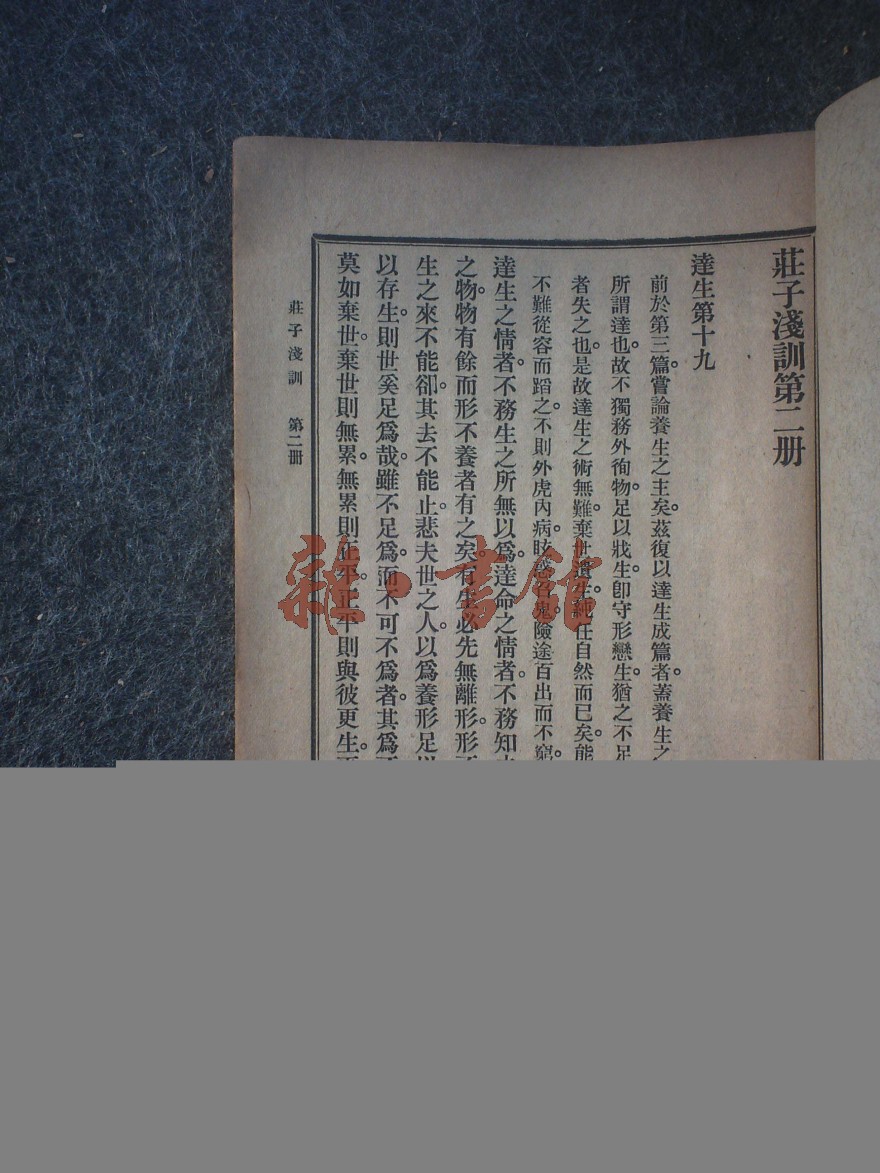 莊子淺訓第二册
達生第十九
前於第三篇嘗論養生之主矣。茲復以達生成篇者。蓋養生之
所謂達也。故不獨務外徇物。足以戕生。卽守形戀生。猶之不足
者失之也。是故達生之術無難。棄世遺生。純任自然而已矣。能
不難從容而蹈之。不則外虎內病。眩惑名鬼。險途百出而不窮。
達生之情者。不務生之所無以爲。達命之情者。不務知
之物。物有餘而形不養者有之矣。有生必先無離形。形
生之來不能卻。其去不能止。悲夫世之人。以爲養形足
以存生。則世奚足爲哉。雖不足爲。而不可不爲者。其爲
莫如棄世。棄世則無累。無累則正平。正平則與彼更生。
莊子淺訓　第二册
雜·書館